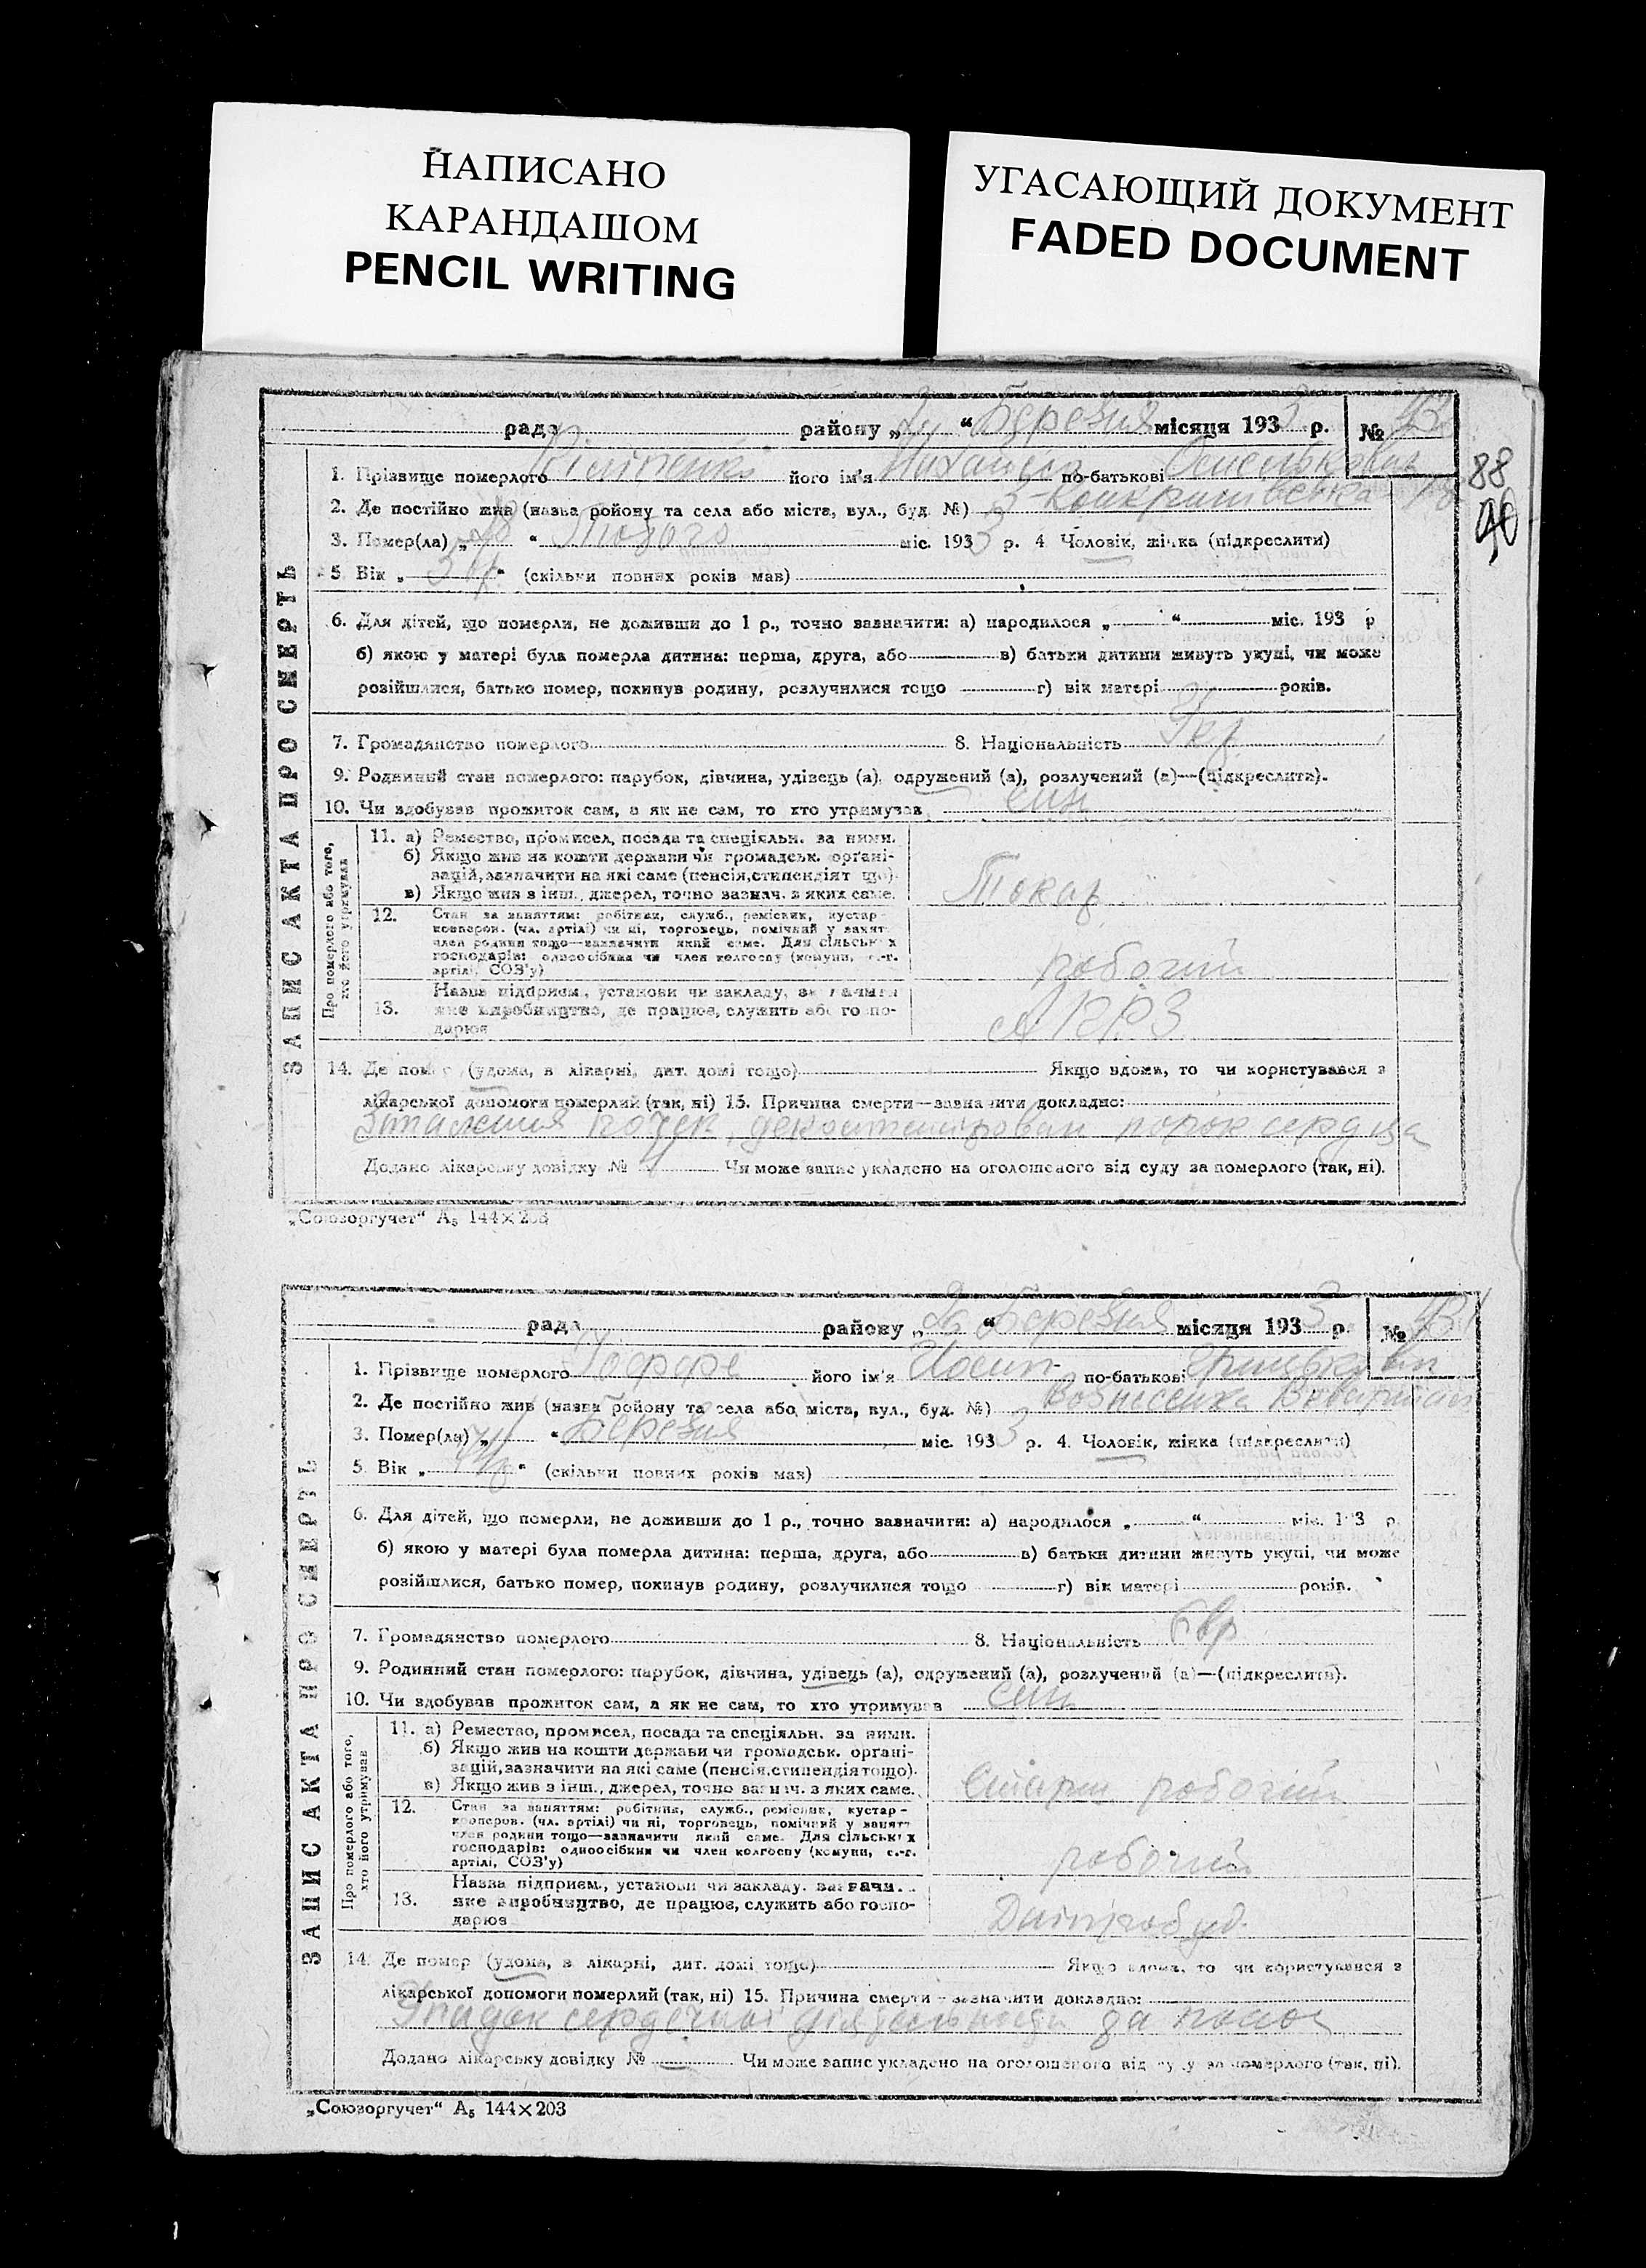 НАПИСАНО
КАРАНДАШОМ
PENCIL WRITING
УГАСАЮЩИЙ ДОКУМЕНТ
FADED DOCUMENT
88
90
ЗАПИС АКТА ПРО СМЕРТЬ
рада района „ “ Березня місяця 1933 р. №
1. Прізвище померлого його ім'я Михайло по-батькові
2. Де постійно жив (назва району та села або міста, вул., буд. №)
3. Помер(ла) „ “ Лютого міс. 1933 р. 4 Чоловік, жінка (підкреслити)
5 Вік „ “ (скільки повних років мав)
6. Для дітей, що померли, не доживши до 1 р., точно зазначити: а) народилося „ “ міс. 193 р
б) якою у матері була померла дитина: перша, друга, або в) батьки дитини живуть укупі, чи може
розійшлися, батько помер, покинув родину, розлучилися тощо г) вік матері років.
7. Громадянство померлого 8. Національність Укр
9. Родинний стан померлого: парубок, дівчина, удівець (а), одружений (а), розлучений (а)—(підкреслити).
10. Чи здобував прожиток сам, а як не сам, то хто утримував син
Про померлого або того, хто його утримував
11. а) Ремество, промисел, посада та спеціяльн. за ними.
б) Якщо жив на кошти держави чи громадськ. організацій,
зазначити на які саме (пенсія, стипендіят що).
в) Якщо жив з інш., джерел, точно зазнач. з яких саме.
Токар
12. Стан за заняттям: робітник, служб., ремісник, кустар-
кооперов. (чл. артілі) чи ні, торговець, помічний у занят.
член родини тощо—зазначити який саме. Для сільських
господарів: одноосібник чи член колгоспу (комуни, с.-г.
артілі, СОЗ'у)
робочий
13. Назва підприєм., установи чи закладу,
яке виробництво, де працює, служить або госпо-
дарює
14. Де помер (удома, в лікарні, дит. домі тощо) Якщо вдома, то чи користувався з
лікарської допомоги померлий (так, ні) 15. Причина смерти—зазначити докладно:
порок сердца
Додано лікарську довідку № Чи може запис укладено на оголошеного від суду за померлого (так, ні).
„Союзоргучет“ А₅ 144×203
ЗАПИС АКТА ПРО СМЕРТЬ
рада району „ “ Березня місяця 1933 р. №
1. Прізвище померлого Іоффе його ім'я Йосип по-батькові
2. Де постійно жив (назва району та села або міста, вул., буд. №) Вознесенка
3. Помер(ла) „ “ Березня міс. 1933 р. 4. Чоловік, жінка (підкреслити)
5. Вік „ “ (скільки повних років мав)
6. Для дітей, що померли, не доживши до 1 р., точно зазначити: а) народилося „ “ міс. 193 р
б) якою у матері була померла дитина: перша, друга, або в) батьки дитини живуть укупі, чи може
розійшлися, батько помер, покинув родину, розлучилися тощо г) вік матері років.
7. Громадянство померлого 8. Національність Євр
9. Родинний стан померлого: парубок, дівчина, удівець (а), одружений (а), розлучений (а)—(підкреслити).
10. Чи здобував прожиток сам, а як не сам, то хто утримував син
Про померлого або того, хто його утримував
11. а) Ремество, промисел, посада та спеціяльн. за ними.
б) Якщо жив на кошти держави чи громадськ. органі-
зацій, зазначити на які саме (пенсія, стипендія тощо).
в) Якщо жив з інш., джерел, точно зазнач. з яких саме.
робочий
12. Стан за заняттям: робітник, служб., ремісник, кустар-
кооперов. (чл. артілі) чи ні, торговець, помічний у занятт
член родини тощо—зазначити який саме. Для сільських
господарів: одноосібник чи член колгоспу (комуни, с.-г.
артілі, СОЗ'у)
робочий
13. Назва підприєм., установи чи закладу. зазначи.
яке виробництво, де працює, служить або госпо-
дарює
Дніпробуд.
14. Де помер (удома, в лікарні, дит. домі тощо) Якщо вдома, то чи користувався з
лікарської допомоги померлий (так, ні) 15. Причина смерти—зазначити докладно:
Упадок сердечної діяльности
Додано лікарську довідку № Чи може запис укладено на оголошеного від суду за померлого (так, ні).
„Союзоргучет“ А₅ 144×203